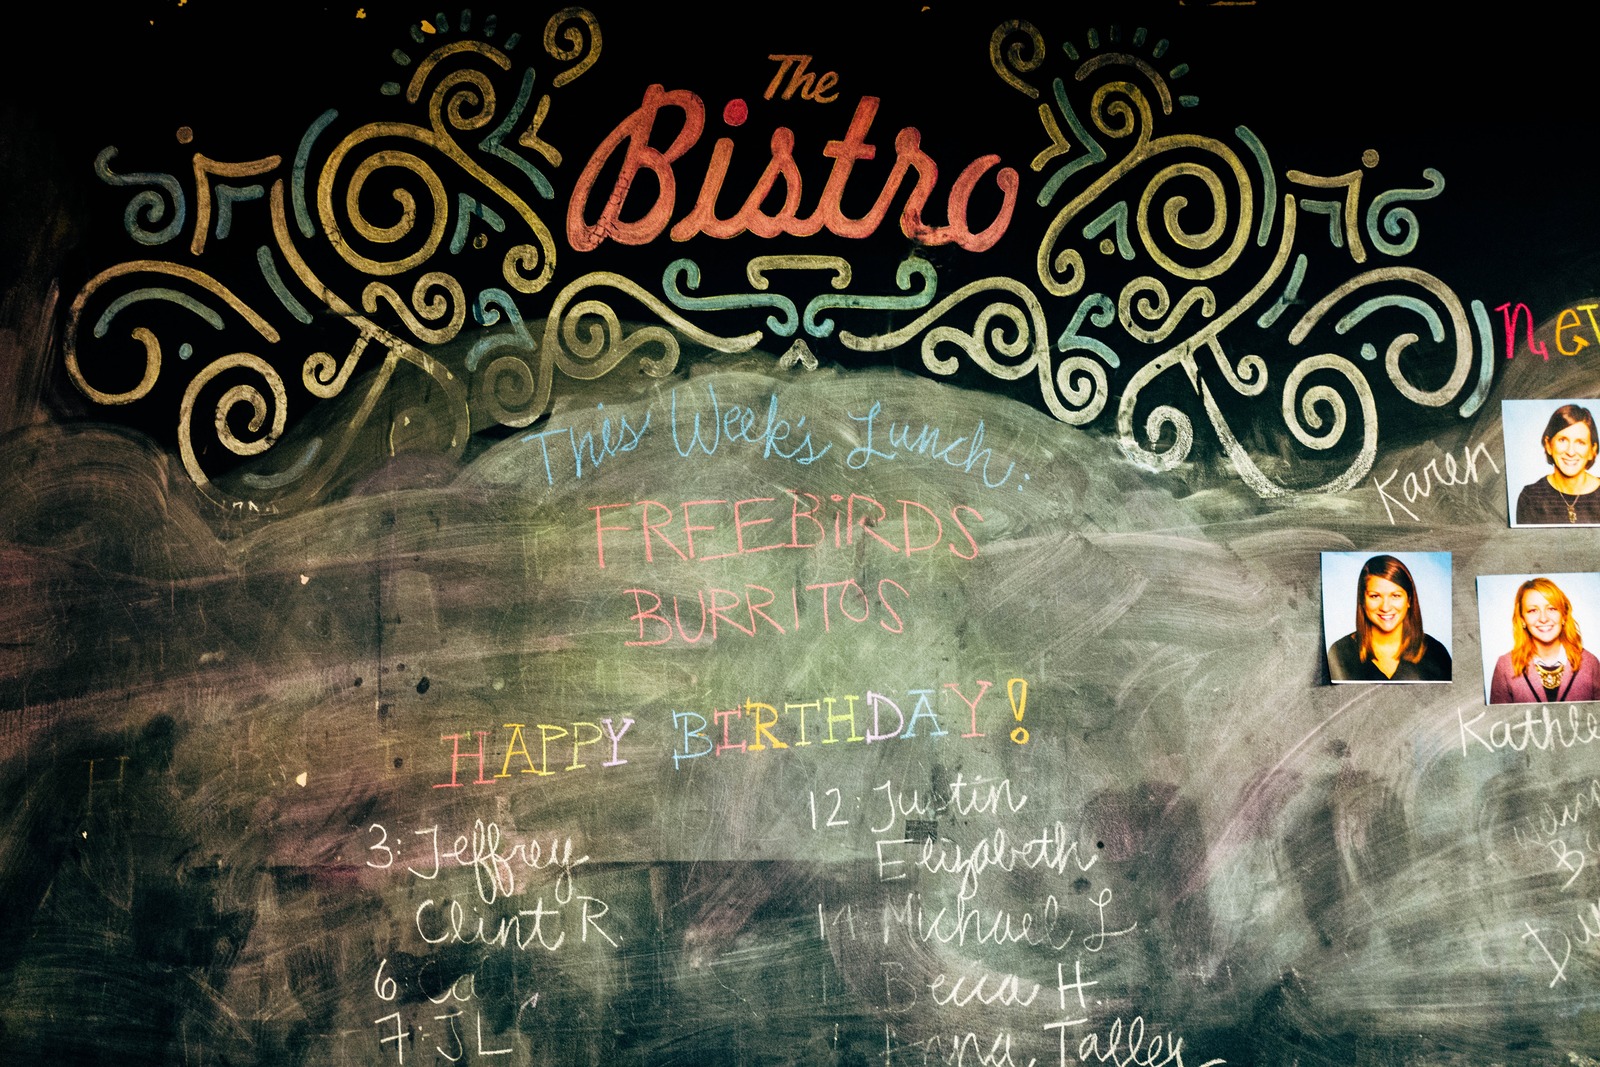 The
Bistro
This Week's Lunch:
FREEBIRDS
BURRITOS
HAPPY BIRTHDAY!
3: Jeffrey
Clint R.
6
7: JL
12: Justin
Elizabeth
14: Michael L
Becca H.
Talley
Karen